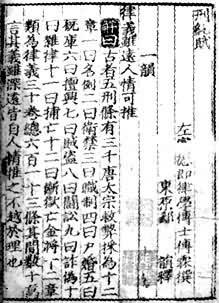 刑統賦
左宣德郎律學博士傅霖撰
東原郄 韻釋
一韻
律義雖遠人情可推
解曰古者五刑條有三千唐太宗敕撰為十二
章一曰名例二曰衛禁三曰職制四曰戶婚五曰
厩庫六曰擅興七曰賊盜八曰鬪訟九曰詐偽十
曰雜律十一曰捕亡十二曰斷獄亡金將十二章
類為律義三十卷總六百一十三條其間數十萬
言其義雖深遠皆自人情推之不越於理也